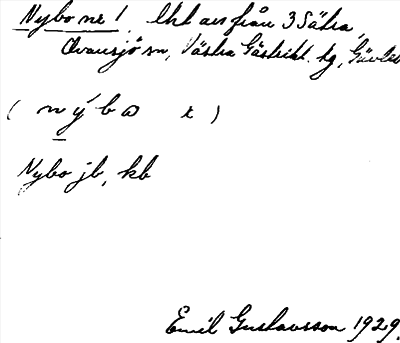 Nybo nr 1, lht avs från 3 Säbra,
Ovansjö sn, Västra Gästrikl. hg, Gävleb
( n ý b ω t )
Nybo jb, kb
Emil Gustavsson 1929.